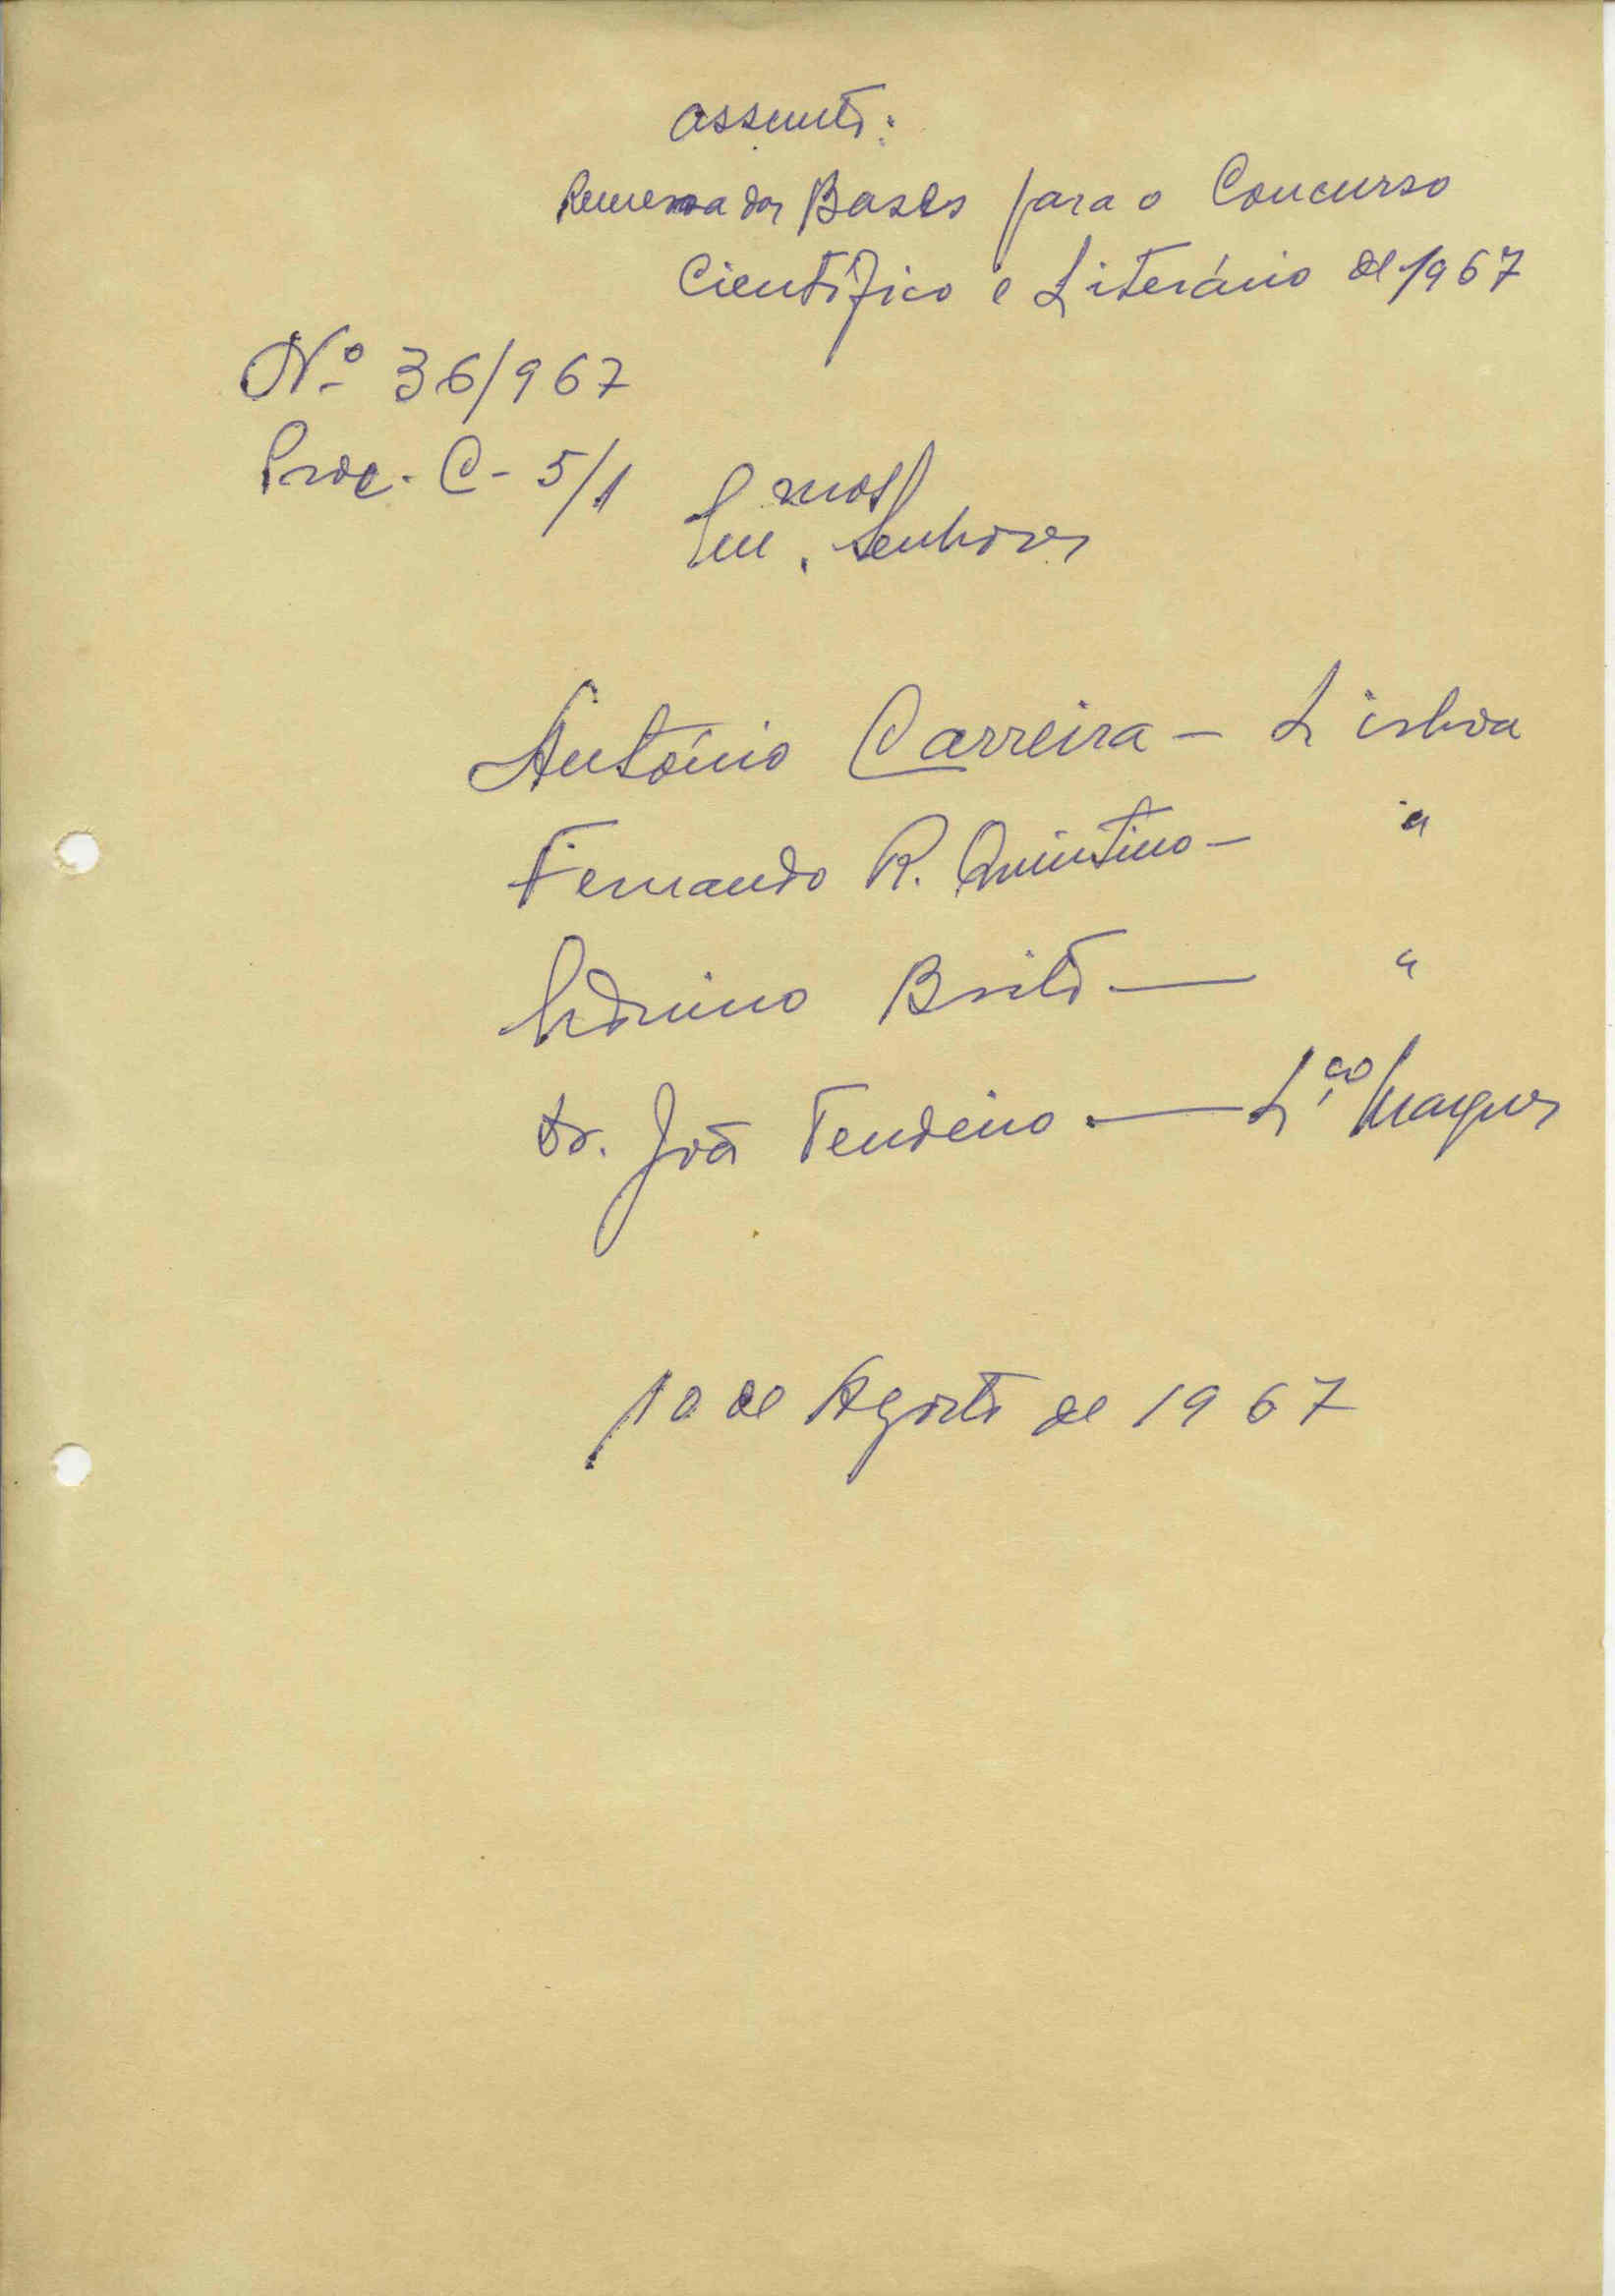 Assunto:
Remessa das Bases para o Concurso
Científico e Literário de 1967
Nº 36/967
Proc. C-5/1
Exmos. Senhores
António Carreira — Lisboa
Fernando R. Quintino — "
Brito — "
Dr. João Tendeiro — L.ço Marques
10 de Agosto de 1967